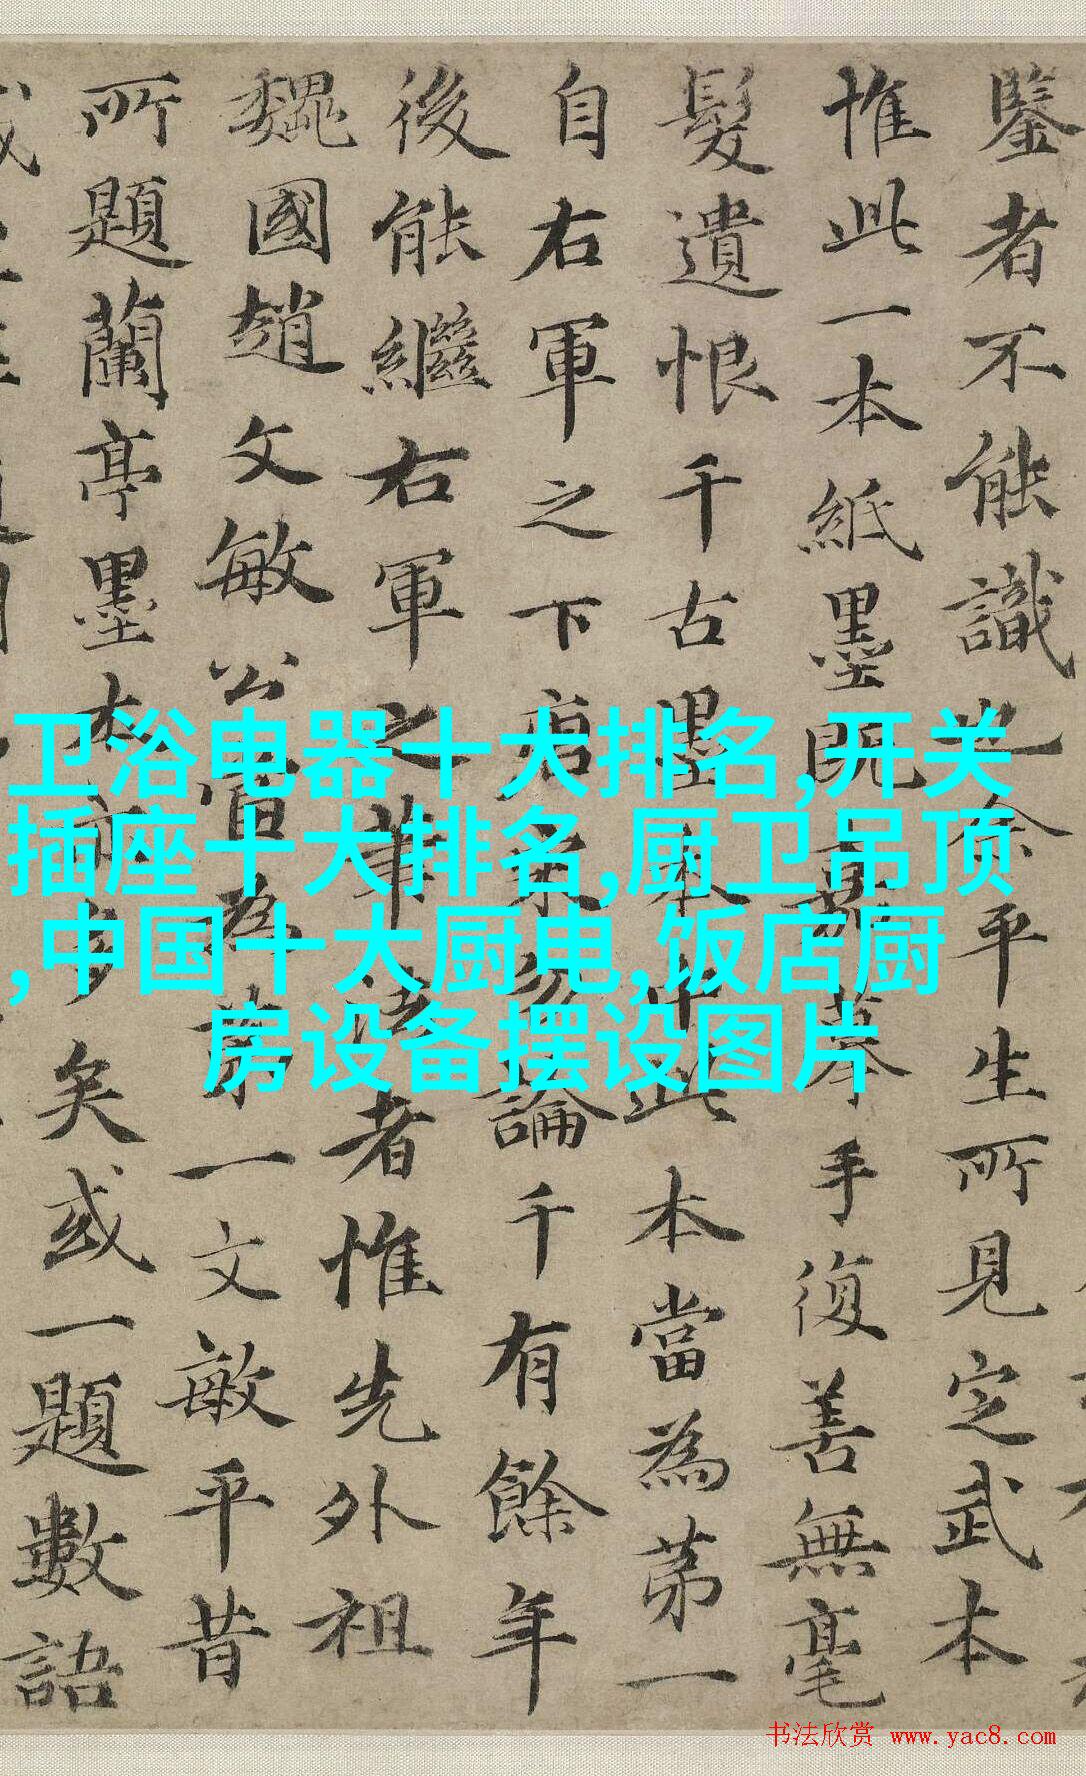 鑒者不能識也余平生所見定武本
惟此一本紙墨既嘉摹手復善無毫
髮遺恨千古墨本中此本當為苐一
自右軍之下論千有餘年
後能繼右軍之筆法者惟先外祖
魏國趙文敏公當為苐一文敏平昔
所題蘭亭墨本亦多矣或一題數語
卫浴电器十大排名,开关
插座十大排名,厨卫吊顶
,中国十大厨电,饭店厨
房设备摆设图片
书法欣赏 www.yac8.com